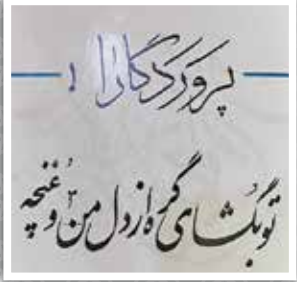 پروردگارا !
تو بگشای گره از دل من و غنچه